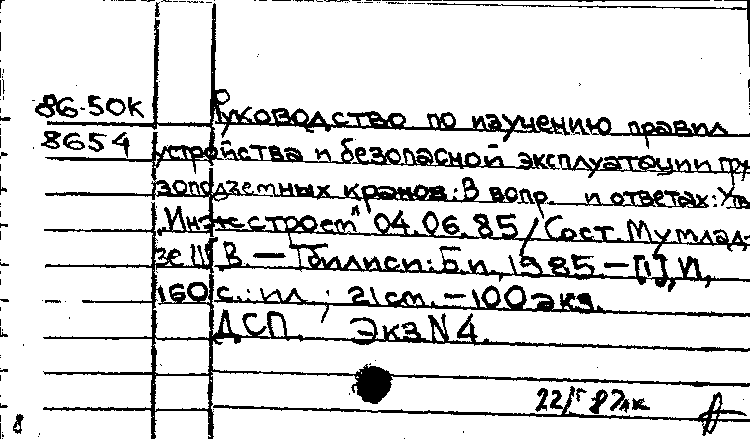 86-50К
8654
Руководство по изучению правил
устройства и безопасной эксплуатации гру
зоподъемных кранов: В вопр. и ответах: Утв
"Инжстроем" 04.06.85/Сост. Мумлад-
зе В. — Тбилиси: Б.и., 1985 — [1], II,
160 с.: ил.; 21 см. — 100 экз.
ДСП. Экз N 4.
22/ 87
8